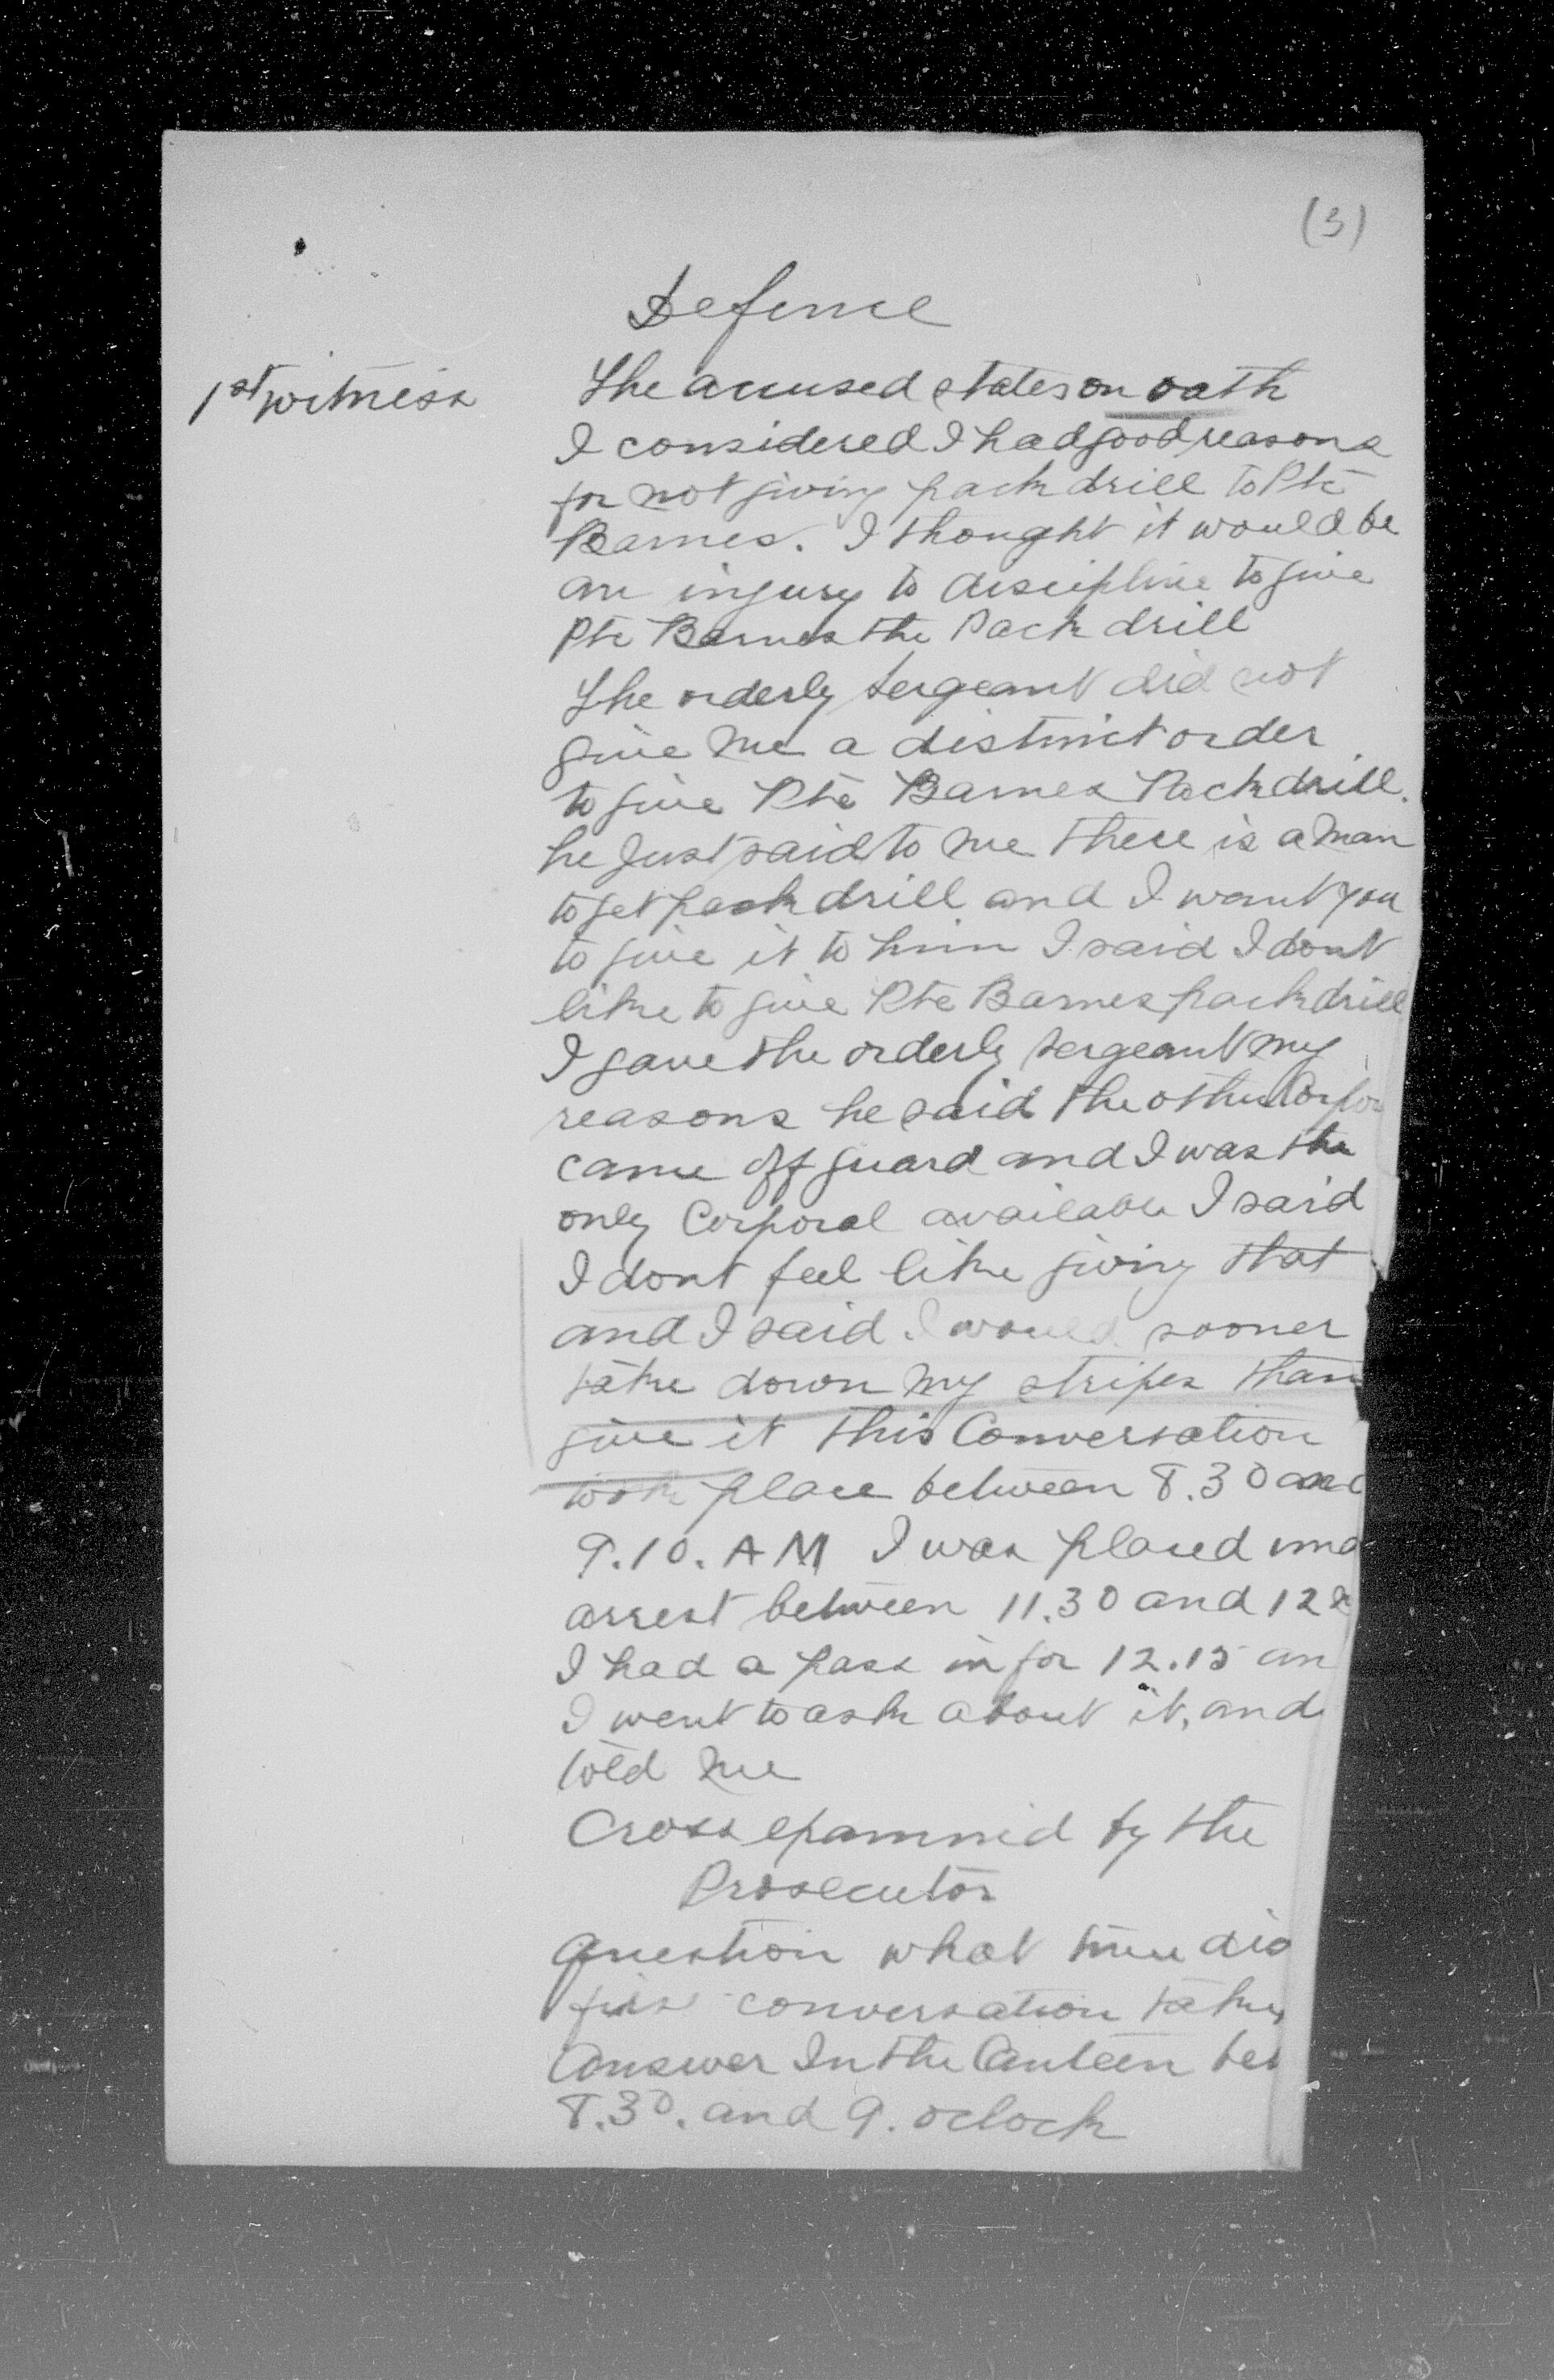 (3)
Defence
1st witness
The accused states on oath
I considered I had good reasons
for not giving pack drill to Pte
Barnes. I thought it would be
an injury to discipline to give
Pte Barnes the Pack drill
The orderly Sergeant did not
give me a distinct order
to give Pte Barnes Pack drill.
he Just said to me there is a man
to get pack drill and I want you
to give it to him I said I dont
like to give Pte Barnes pack drill
I gave the orderly Sergeant my
reasons he said the other Corpor
came off guard and I was the
only Corporal available I said
I dont feel like giving that
and I said I would sooner
take down my stripes than
give it this Conversation
took place between 8.30 and
9.10. AM I was placed und
arrest between 11.30 and 12
I had a pass in for 12.15 an
I went to ask about it, and
told me
Cross examined by the
Prosecutor
Question what time did
first conversation take
Answer In the Canteen bet
8.30. and 9. oclock